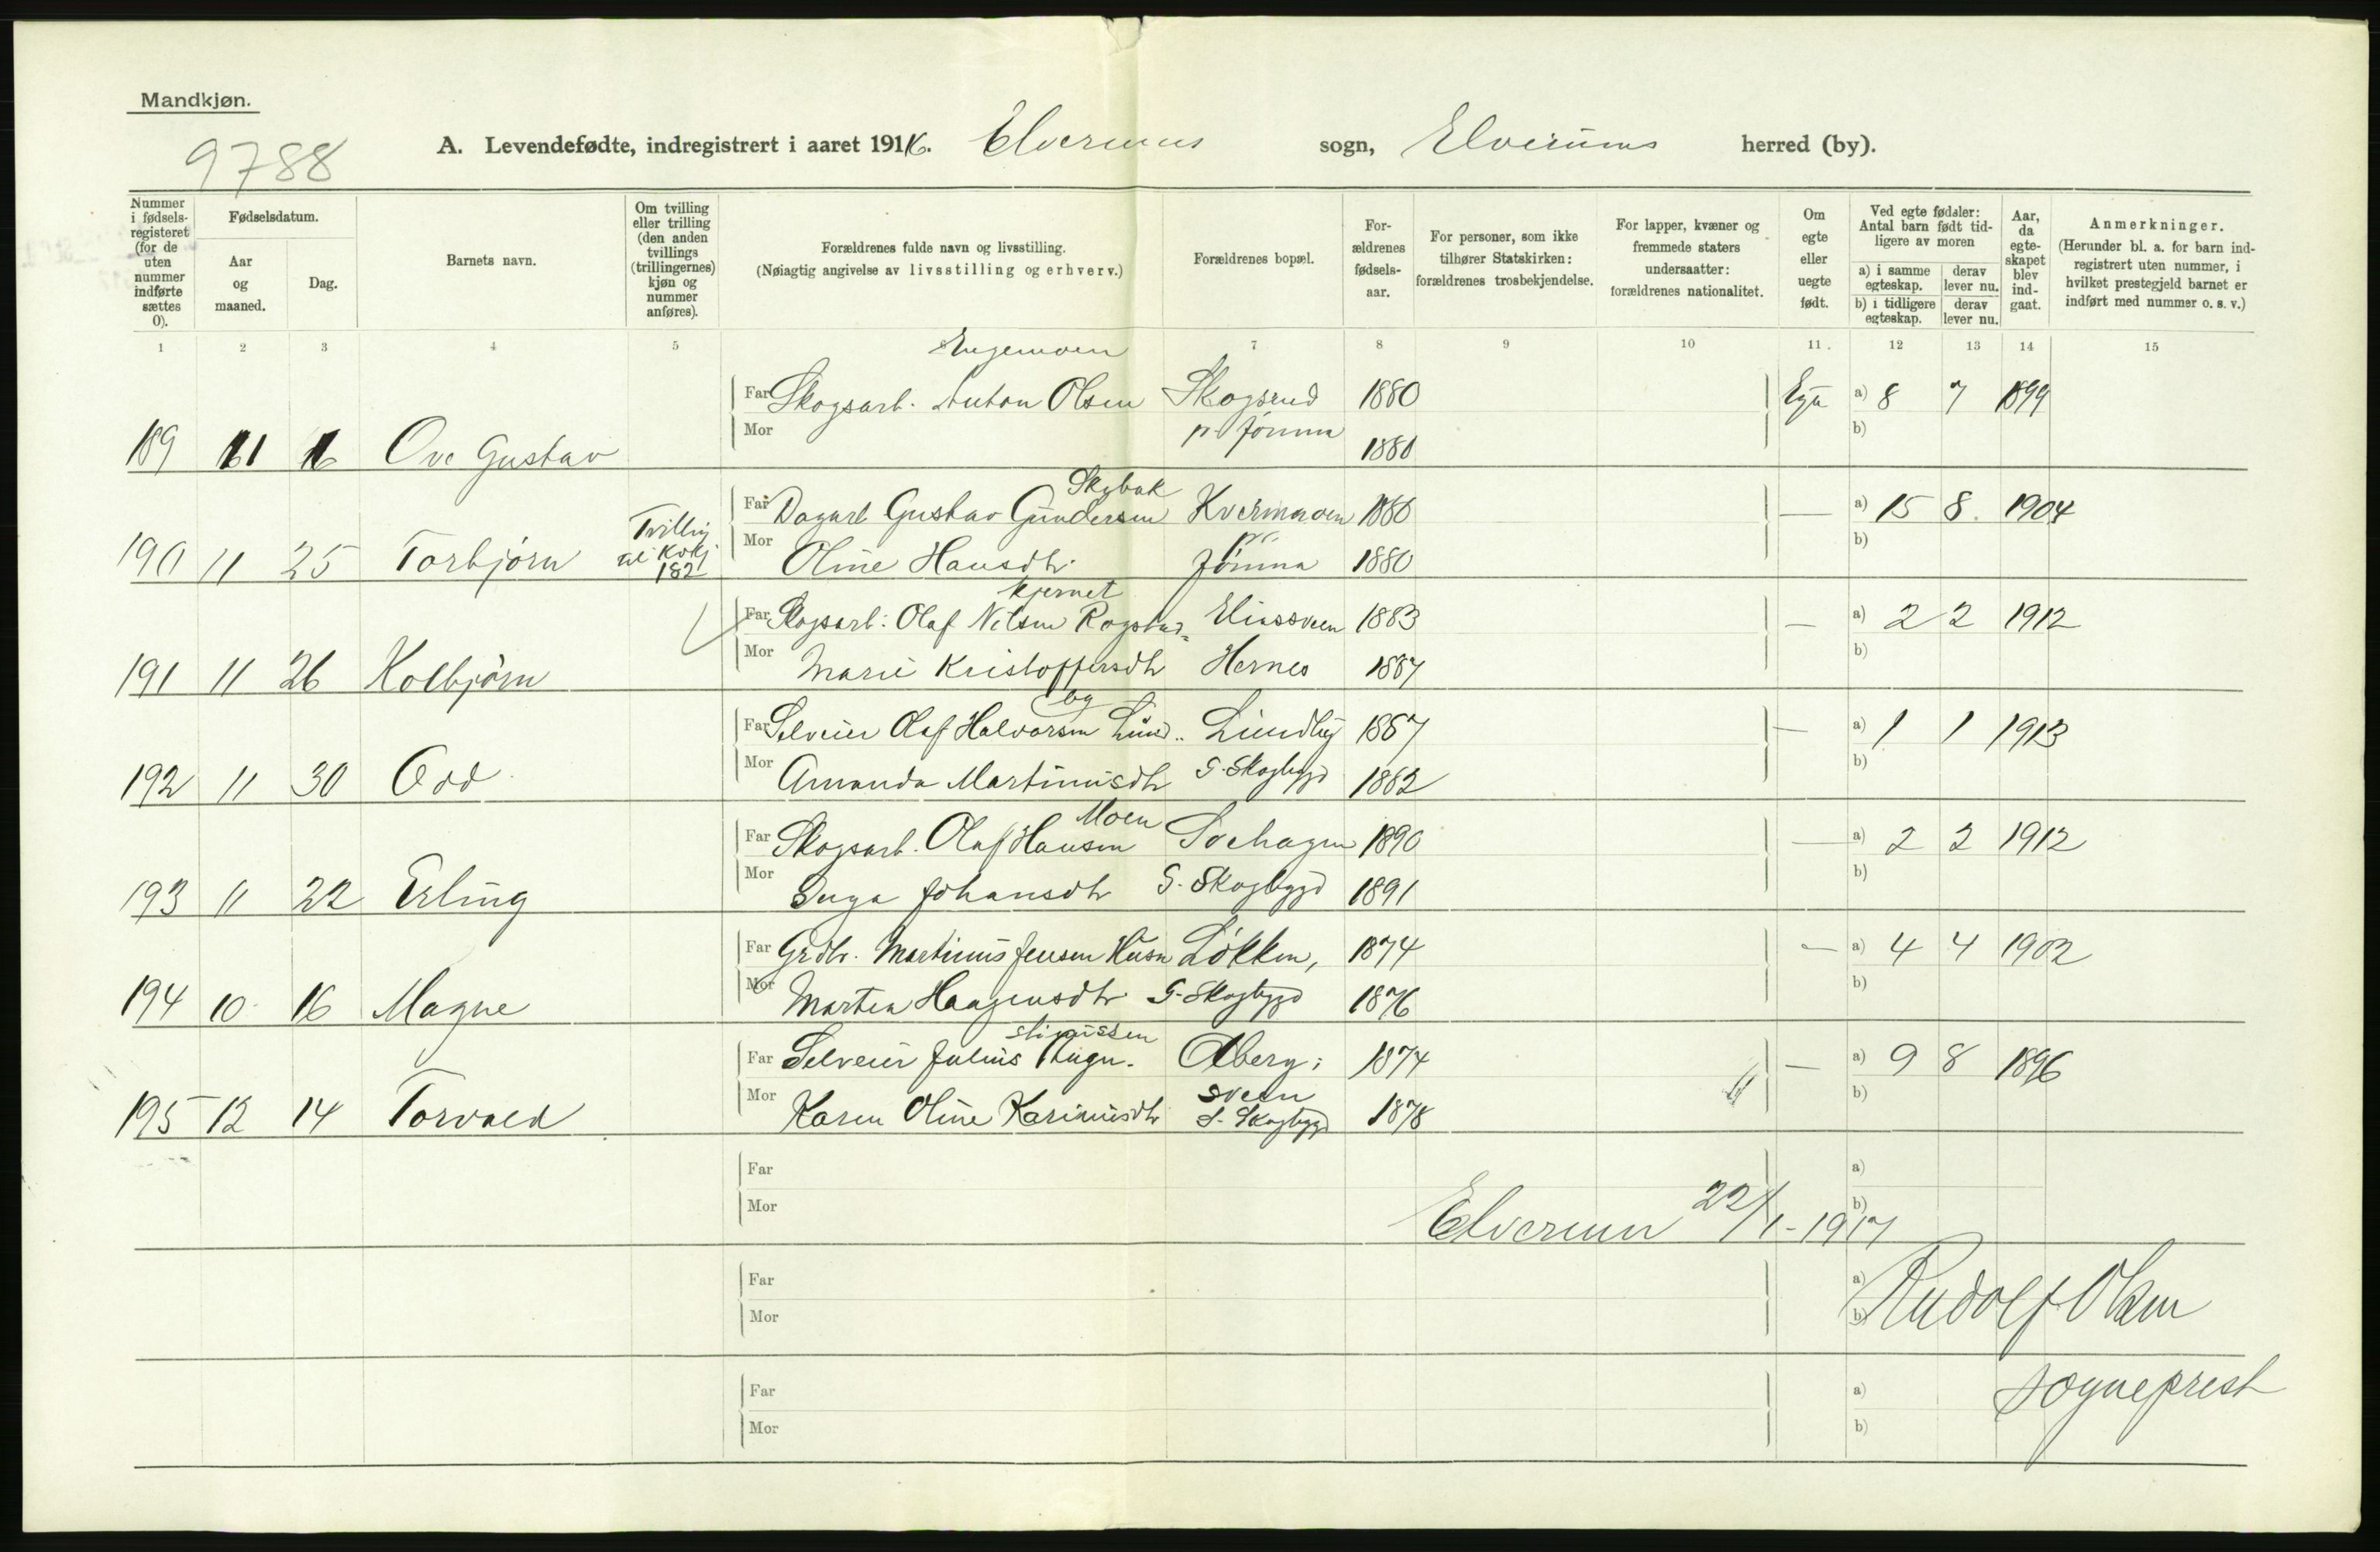 Mandkjøn.
9788
A. Levendefødte, indregistrert i aaret 1916. Elverums sogn, Elverums herred (by).
Nummer i fødsels-registeret (for de uten nummer indførte sættes 0).
Fødselsdatum.
Aar og maaned.
Dag.
Barnets navn.
Om tvilling eller trilling (den anden tvillings (trillingernes) kjøn og nummer anføres).
Forældrenes fulde navn og livsstilling.
(Nøiagtig angivelse av livsstilling og erhverv.)
Forældrenes bopæl.
For-ældrenes fødsels-aar.
For personer, som ikke tilhører Statskirken: forældrenes trosbekjendelse.
For lapper, kvæner og fremmede staters undersaatter: forældrenes nationalitet.
Om egte eller uegte født.
Ved egte fødsler: Antal barn født tid-ligere av moren
a) i samme egteskap. derav lever nu.
b) i tidligere egteskap. derav lever nu.
Aar, da egte-skapet blev ind-gaat.
Anmerkninger.
(Herunder bl. a. for barn ind-registrert uten nummer, i hvilket prestegjeld barnet er indført med nummer o. s. v.)
1 2 3 4 5 7 8 9 10 11. 12 13 14 15
Engemoen
Far Skogsarb. Anton Olsen Skogsrud 1880 a) 8 7 1899
Mor Jømna b)
189 11 Ove Gustav
Skybak
Far Dagarb Gustav Gundersen 1880 — a) 15 8. 1904
Tvilling
Mor Oline Hansdtr. Jømna 1880 b)
190 11 25 Torbjørn 182
kjernet
Far Skogsarb: Olaf Nilsen Rogstad- 1883 — a) 2 2 1912
Mor Marie Kristoffersdtr Hernes 1887 b)
191 11 26 Kolbjørn
by
Far Selveier Olaf Halvorsen Lund.. Lundby 1887 — a) 1 1 1913
Mor Amanda Martinusdtr S. Skogbygd 1882 b)
192 11 30 Odd
Moen
Far Skogsarb. Olaf Hansen 1890 — a) 2 2 1912
Mor Inga Johansdtr S. Skogbygd 1891 b)
193 11 22 Erling
Far Grdbr. Martinus Jensen Løkken, 1874 — a) 4 4 1902
Mor Martea Haagensdtr S. Skogbygd 1876 b)
194 10 16 Magne
Far Selveier Julius Aaberg: 1874 — a) 9 8 1896
Mor Karen Oline Karinusdtr sveen S. Skogbygd 1878 b)
195 12 14 Torvald
Far a)
Mor b)
Elverum 22/1-1917
Far a)
Rudolf Olsen
Mor b)
Far a)
sogneprest
Mor b)